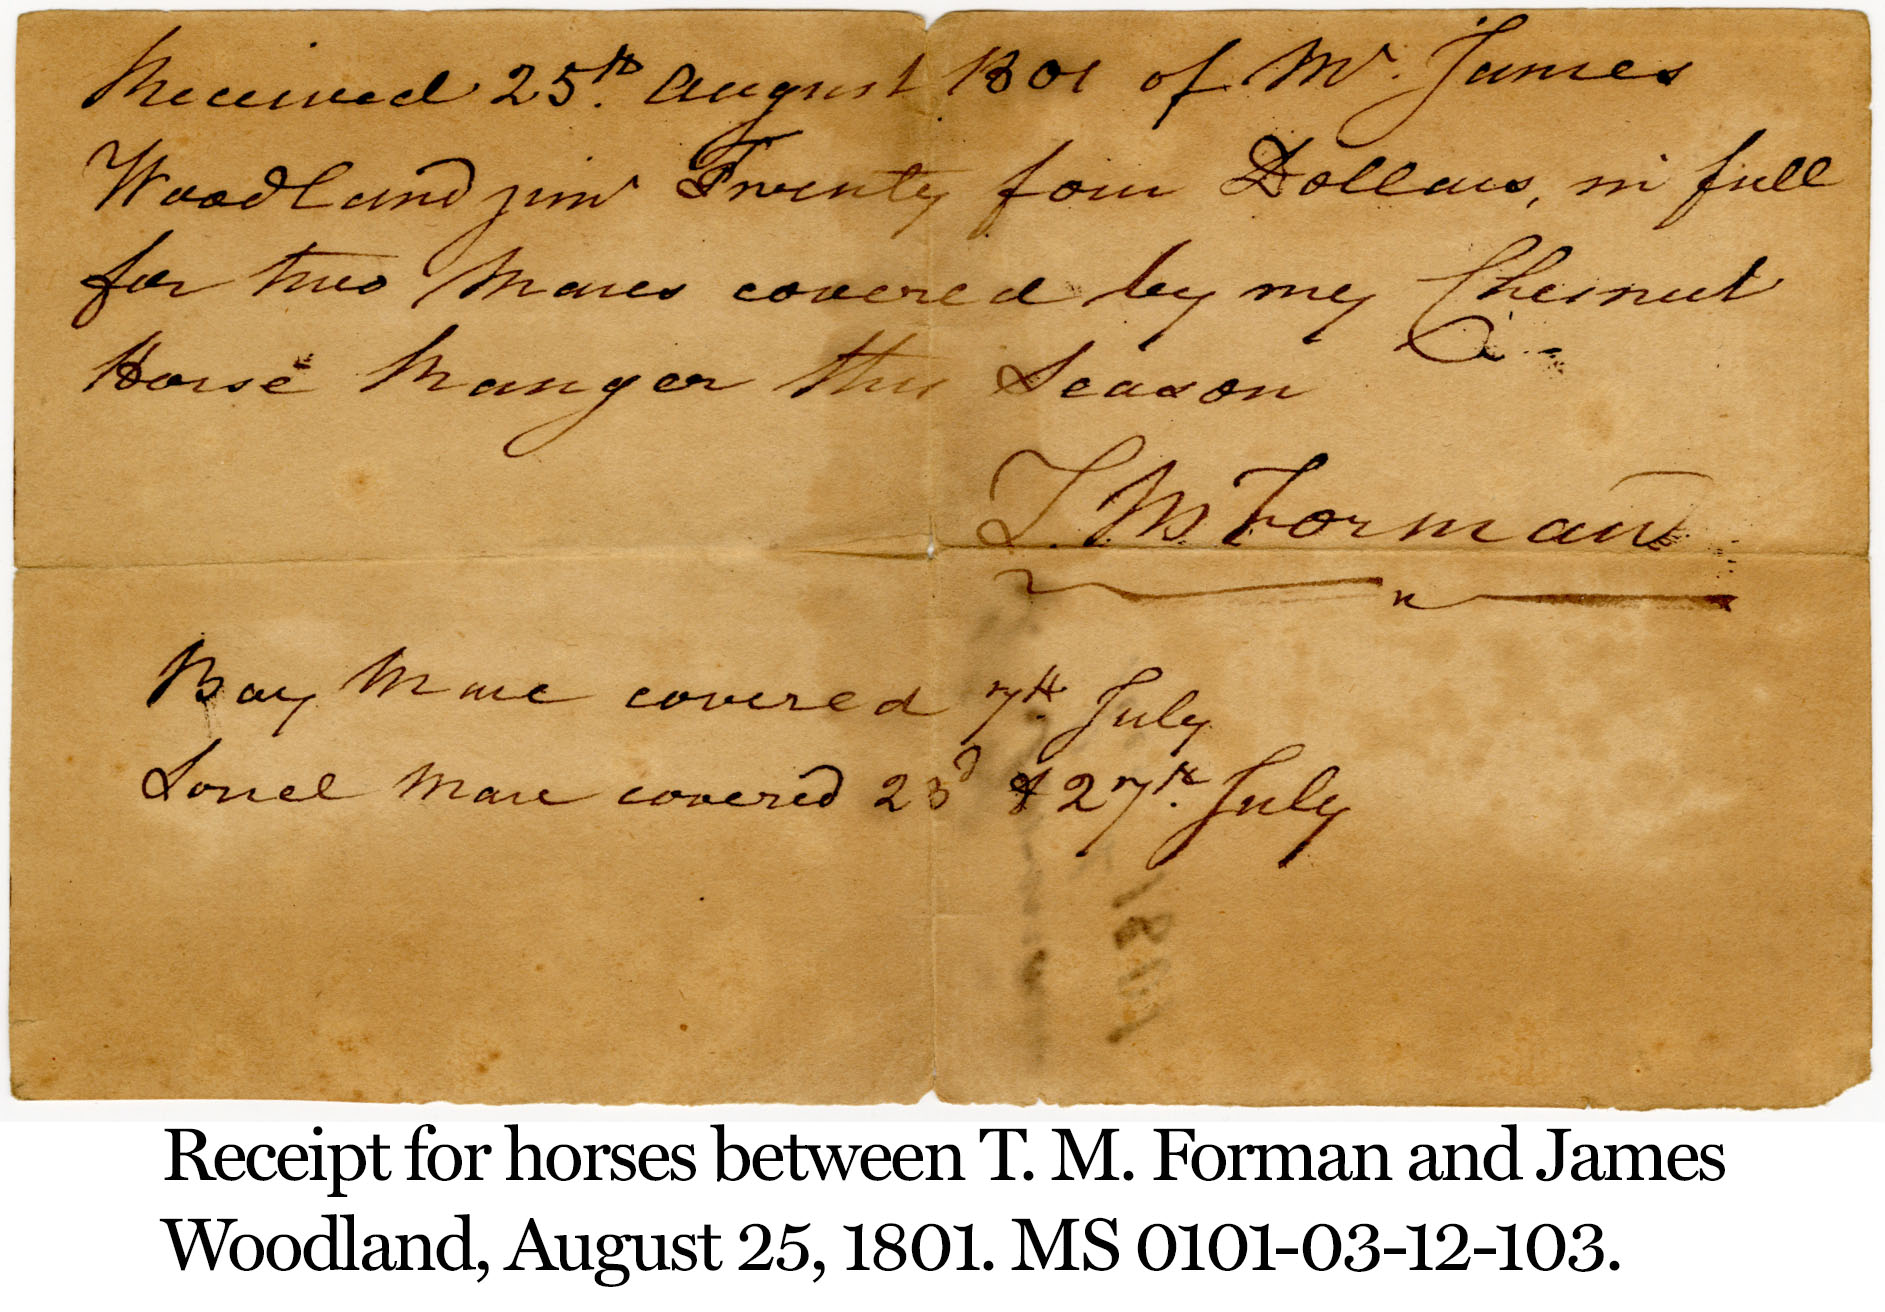 Received 25th. August 1801 of Mr. James
Woodland junr Twenty four Dollars, in full
for two Mares covered by my Chesnut
Horse Manger this Season
T. M Forman
Bay Mare covered 7th. July
Sorrel Mare covered 23d & 27th. July
Receipt for horses between T. M. Forman and James
Woodland, August 25, 1801. MS 0101-03-12-103.